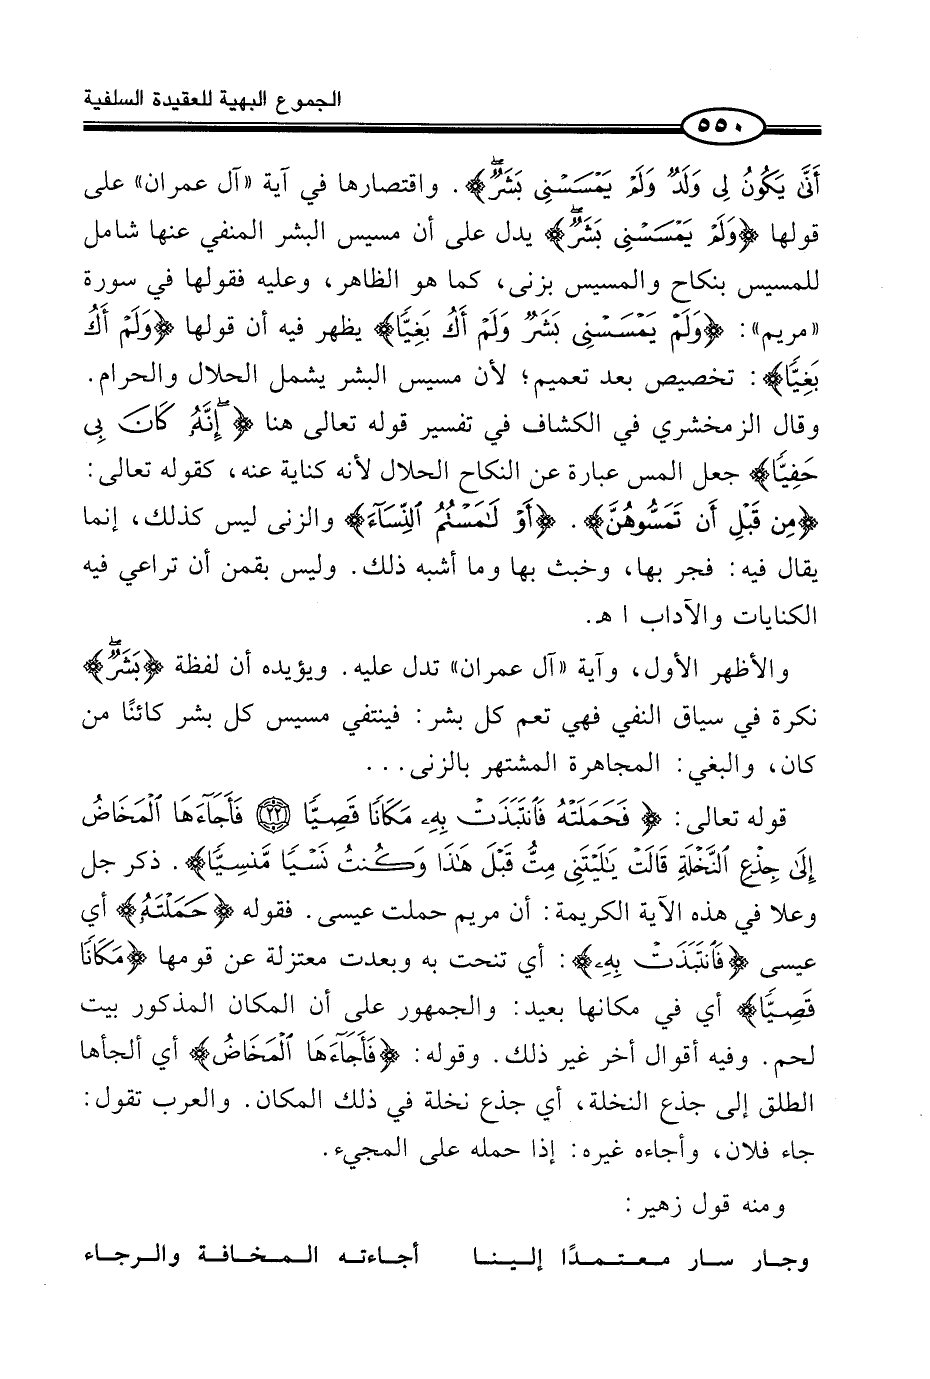 الجموع البهية للعقيدة السلفية
٥٥٠
أَنَّى يَكُونُ لِي وَلَدٌ وَلَمْ يَمْسَسْنِي بَشَرٌ﴾. واقتصارها في آية «آل عمران» على
قولها ﴿وَلَمْ يَمْسَسْنِي بَشَرٌ﴾ يدل على أن مسيس البشر المنفي عنها شامل
للمسيس بنكاح والمسيس بزنى، كما هو الظاهر، وعليه فقولها في سورة
«مريم»: ﴿وَلَمْ يَمْسَسْنِي بَشَرٌ وَلَمْ أَكُ بَغِيًّا﴾ يظهر فيه أن قولها ﴿وَلَمْ أَكُ
بَغِيًّا﴾: تخصيص بعد تعميم؛ لأن مسيس البشر يشمل الحلال والحرام.
وقال الزمخشري في الكشاف في تفسير قوله تعالى هنا ﴿إِنَّهُ كَانَ بِي
حَفِيًّا﴾ جعل المس عبارة عن النكاح الحلال لأنه كناية عنه، كقوله تعالى:
﴿مِن قَبْلِ أَن تَمَسُّوهُنَّ﴾. ﴿أَوْ لَامَسْتُمُ النِّسَاءَ﴾ والزنى ليس كذلك، إنما
يقال فيه: فجر بها، وخبث بها وما أشبه ذلك. وليس بقمن أن تراعي فيه
الكنايات والآداب ا هـ.
والأظهر الأول، وآية «آل عمران» تدل عليه. ويؤيده أن لفظة ﴿بَشَرٌ﴾
نكرة في سياق النفي فهي تعم كل بشر: فينتفي مسيس كل بشر كائنًا من
كان، والبغي: المجاهرة المشتهر بالزنى...
قوله تعالى: ﴿فَحَمَلَتْهُ فَانتَبَذَتْ بِهِ مَكَانًا قَصِيًّا ۝٢٢ فَأَجَاءَهَا الْمَخَاضُ
إِلَى جِذْعِ النَّخْلَةِ قَالَتْ يَالَيْتَنِي مِتُّ قَبْلَ هَٰذَا وَكُنتُ نَسْيًا مَّنسِيًّا﴾. ذكر جل
وعلا في هذه الآية الكريمة: أن مريم حملت عيسى. فقوله ﴿حَمَلَتْهُ﴾ أي
عيسى ﴿فَانتَبَذَتْ بِهِ﴾: أي تنحت به وبعدت معتزلة عن قومها ﴿مَكَانًا
قَصِيًّا﴾ أي في مكانها بعيد: والجمهور على أن المكان المذكور بيت
لحم. وفيه أقوال أخر غير ذلك. وقوله: ﴿فَأَجَاءَهَا الْمَخَاضُ﴾ أي ألجأها
الطلق إلى جذع النخلة، أي جذع نخلة في ذلك المكان. والعرب تقول:
جاء فلان، وأجاءه غيره: إذا حمله على المجيء.
ومنه قول زهير:
وجار سار معتمدًا إلينا أجاءته المخافة والرجاء